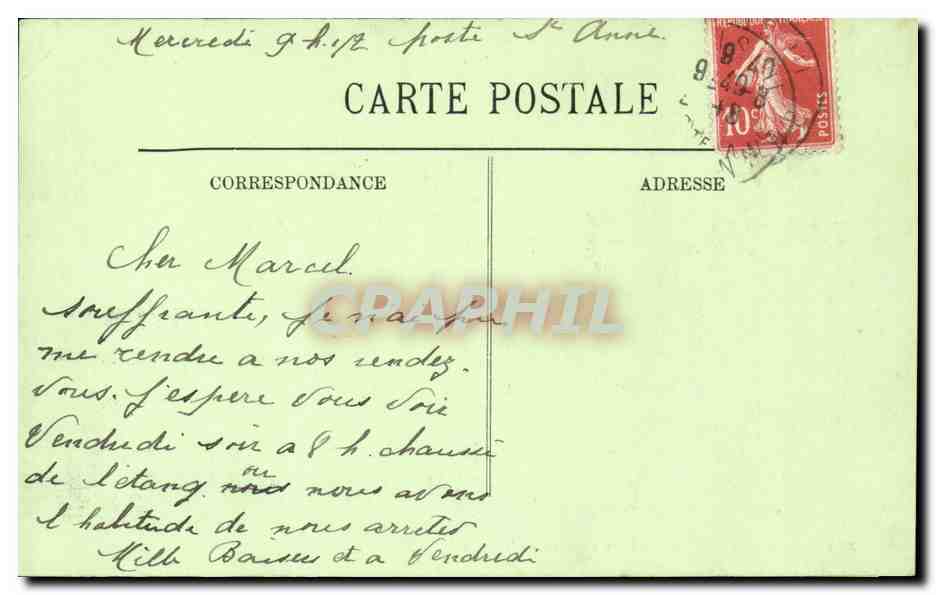 Mercredi 9 h. 1/2 poste St Anne.
REPUBLIQUE FRANÇAISE
10c
POSTES
CARTE POSTALE
CORRESPONDANCE
ADRESSE
Cher Marcel.
souffrante, je n'ai pu
me rendre a nos rendez.
vous. J'espere vous voir
Vendredi soir a 8 h. chaussé
de l'étang ou nous avons
l habitude de nous arreter
Mille Baisers et a Vendredi
CPAPHIL